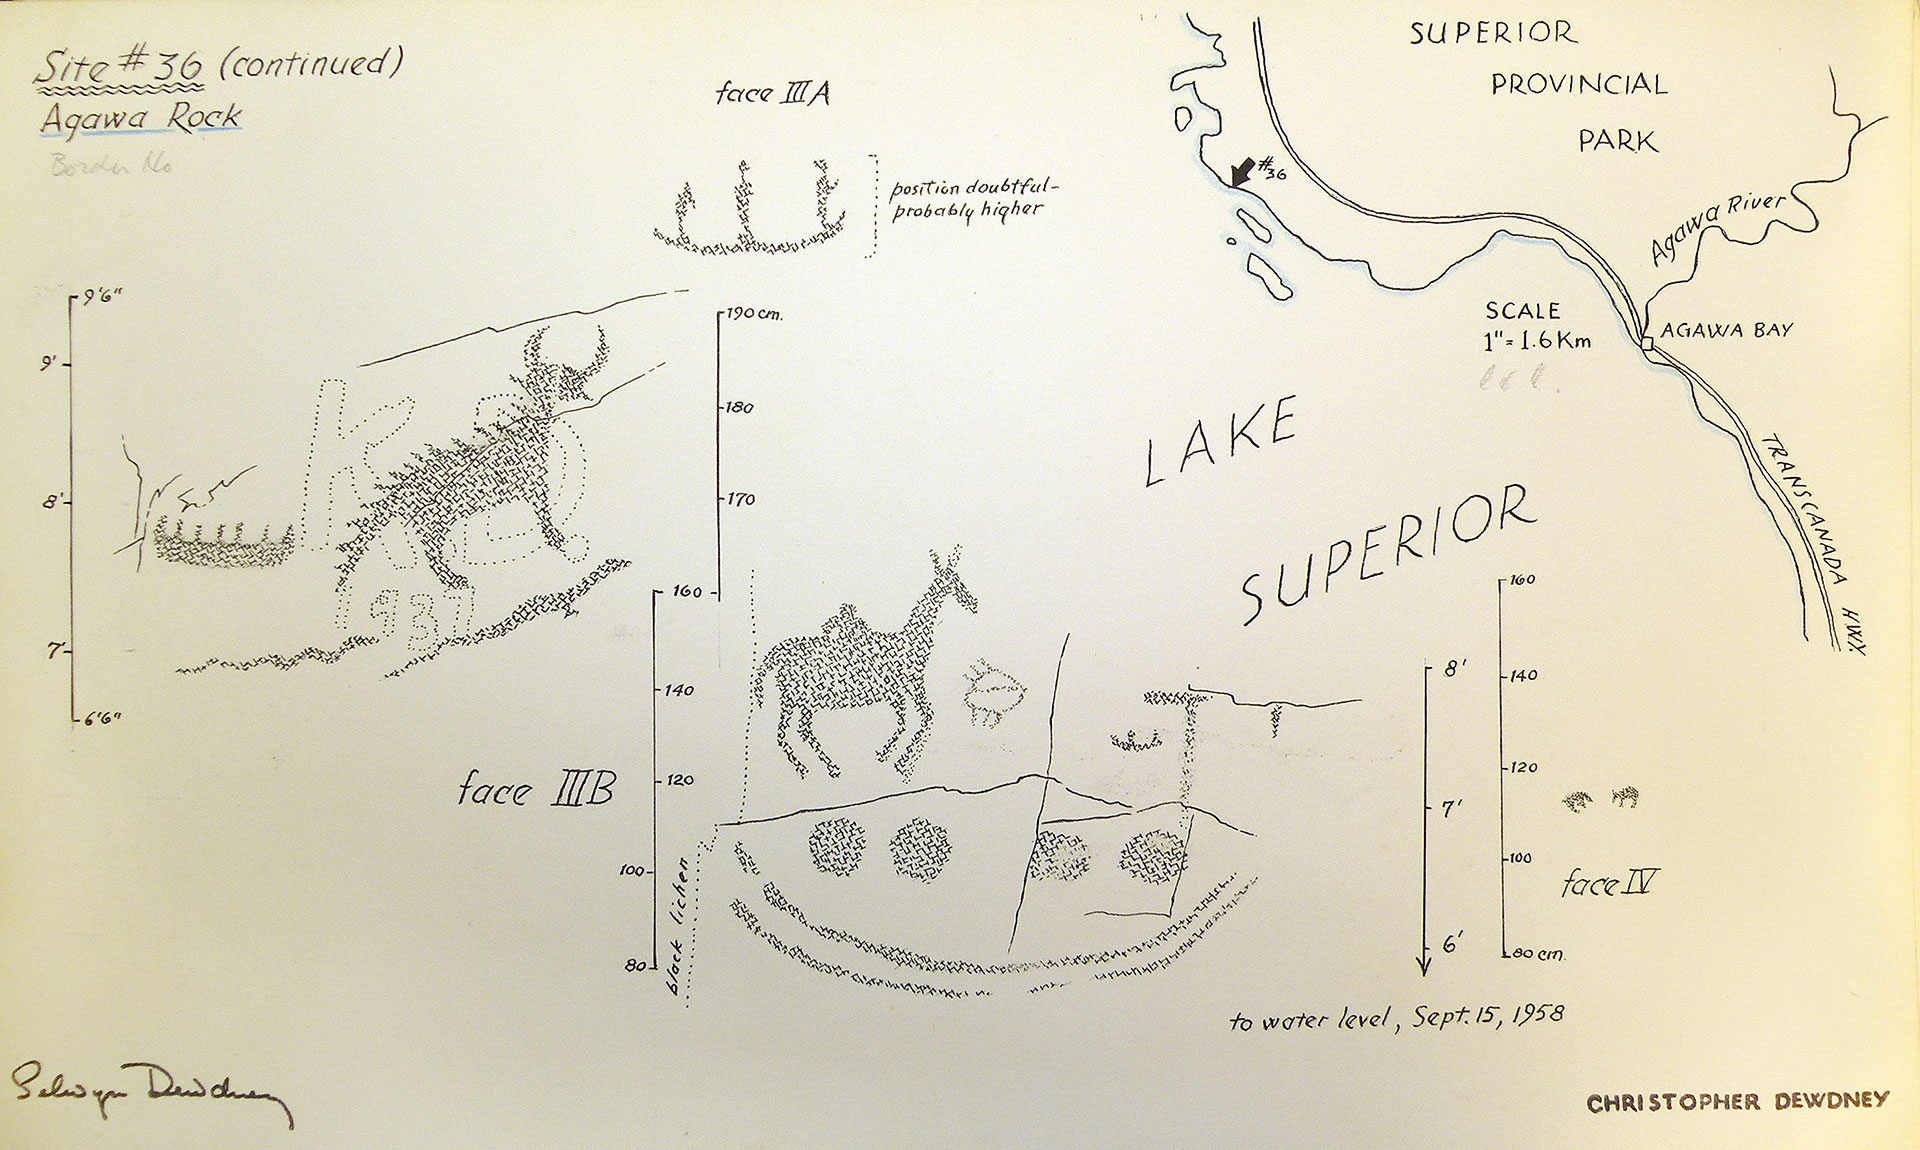 Site #36 (continued)
Agawa Rock
Border No
face IIIA
position doubtful-
probably higher
SUPERIOR
PROVINCIAL
PARK
#36
Agawa River
SCALE
1" = 1.6 Km
AGAWA BAY
LAKE
SUPERIOR
TRANSCANADA HWY.
9'6"
9'
8'
7'
6'6"
190 cm.
180
170
160
1937
140
120
100
80
face IIIB
black lichen
8'
7'
6'
160
140
120
100
80 cm.
face IV
to water level, Sept. 15, 1958
Selwyn Dewdney
CHRISTOPHER DEWDNEY